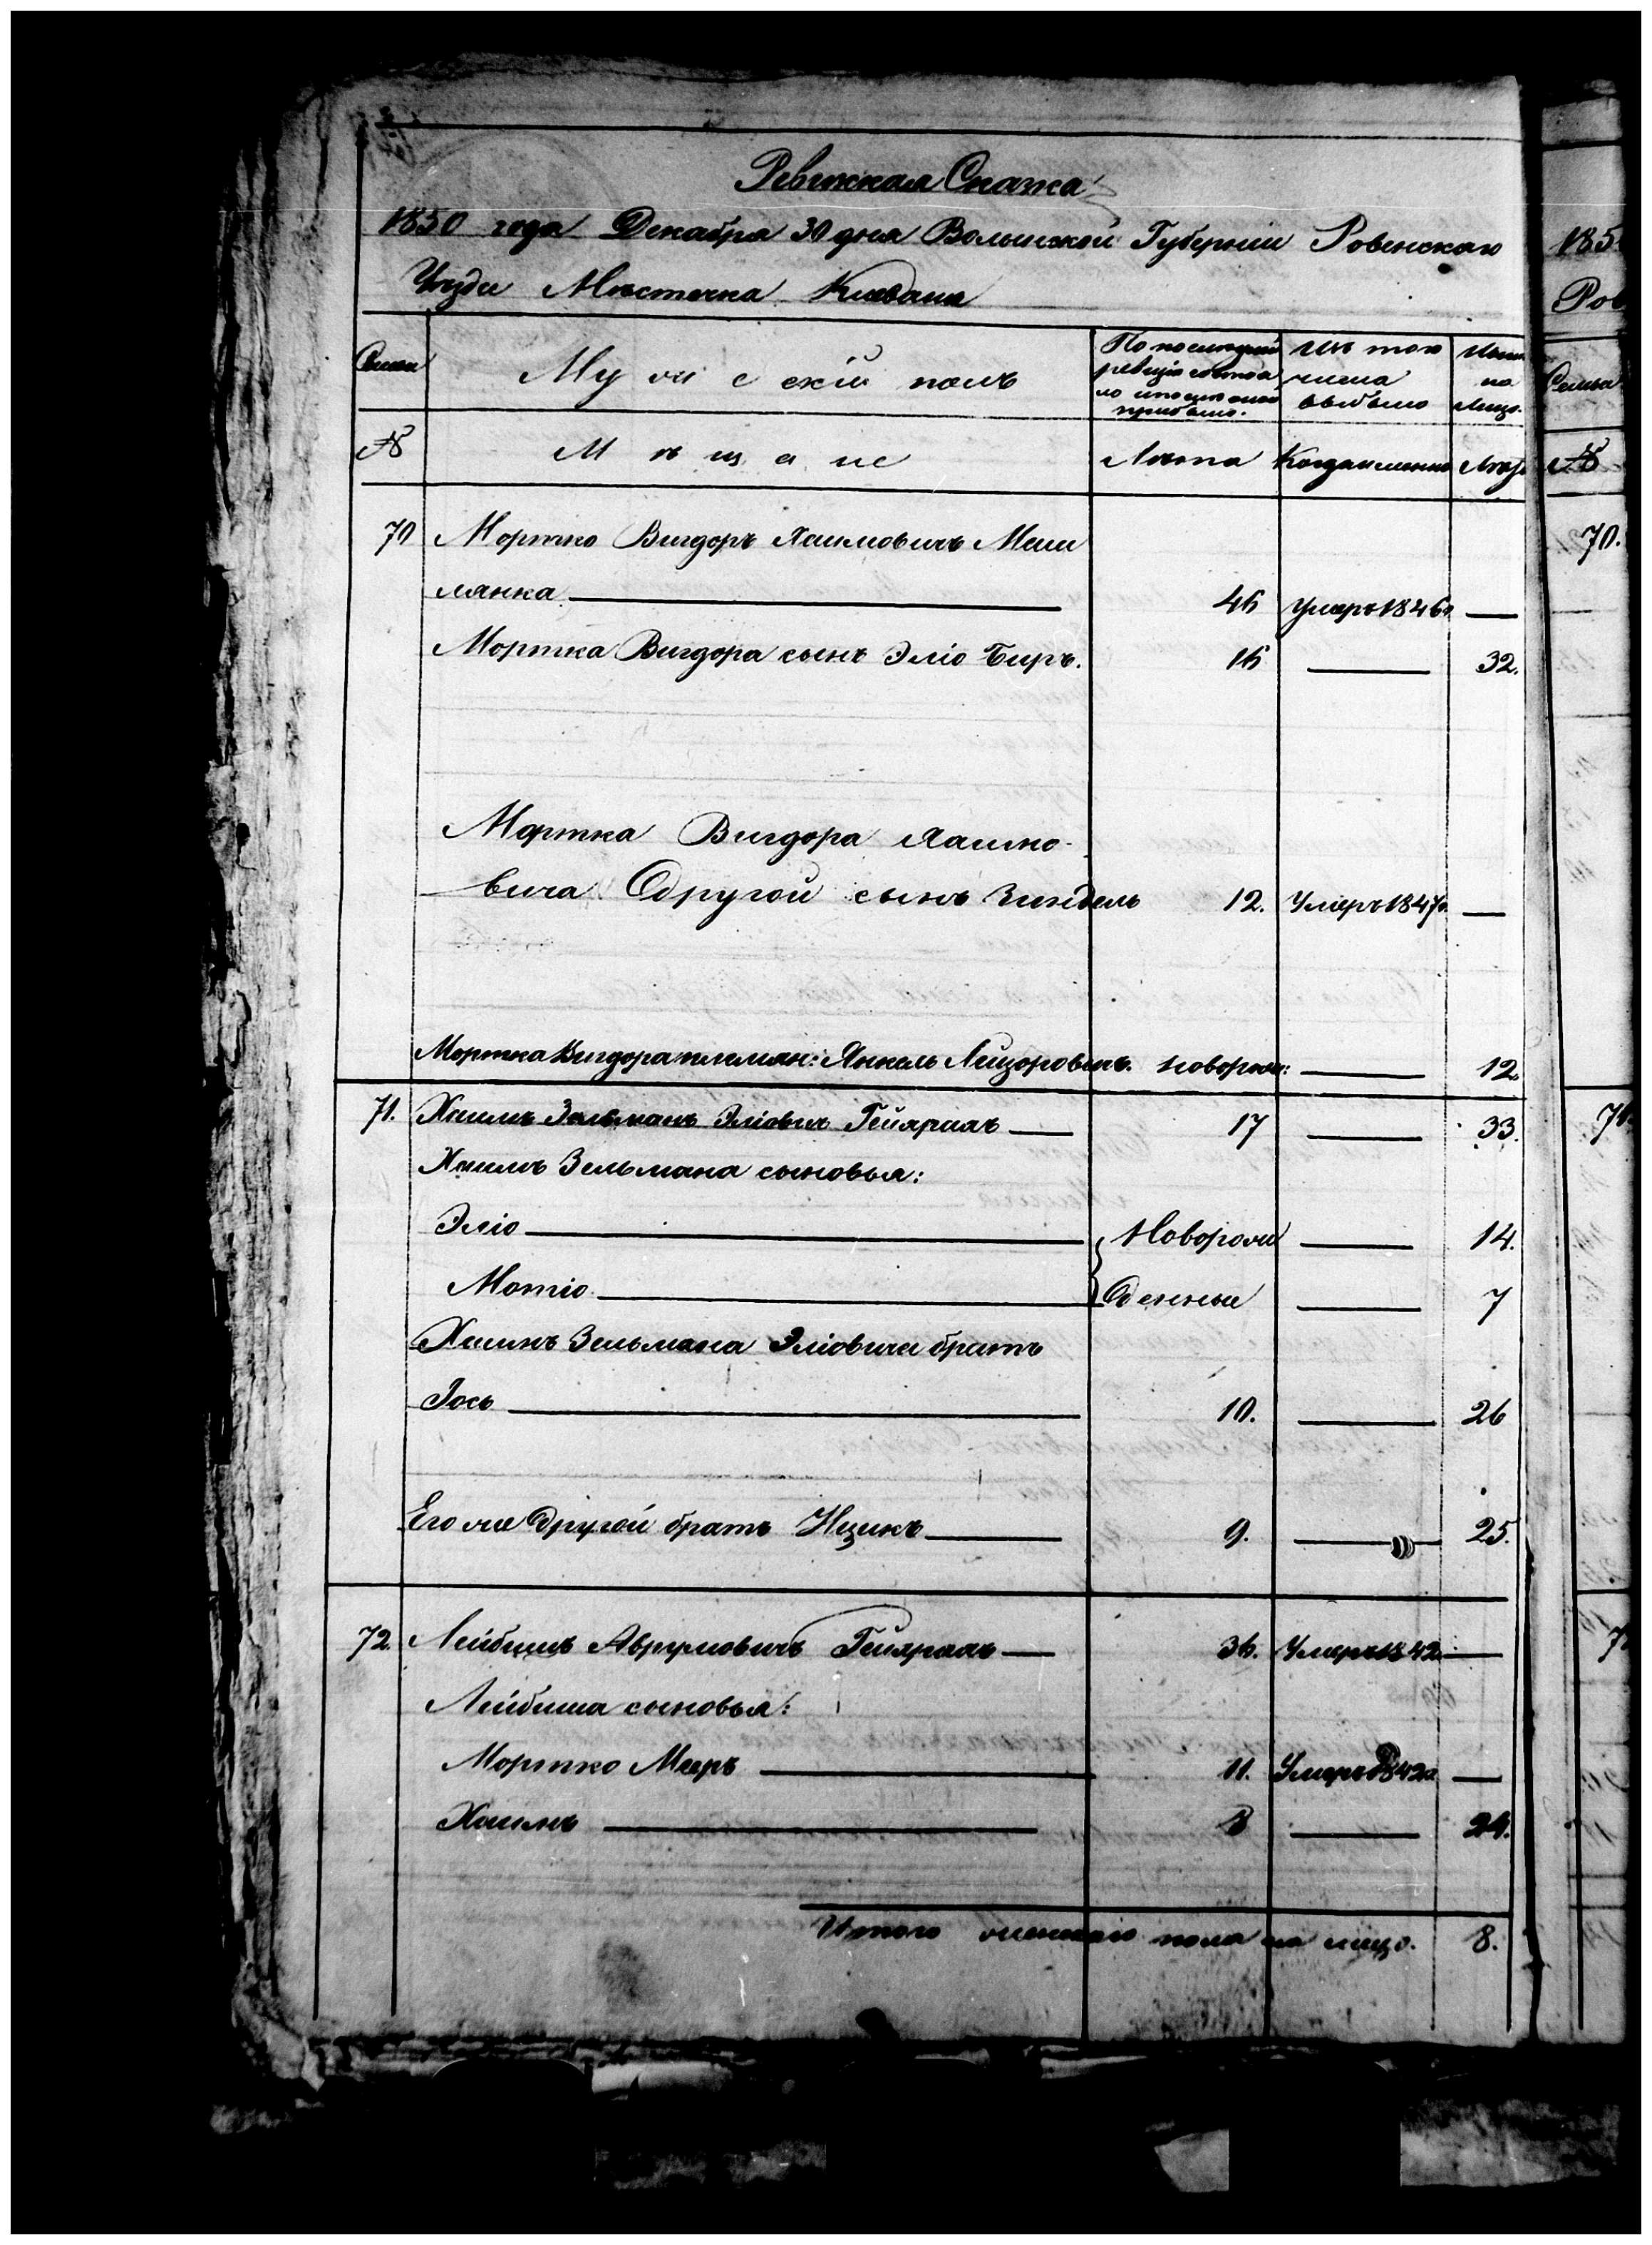 Ревижкая Скажа
1850 года Декабря 30 дня Волынской Губерніи Ровенскаго
Уѣзда Мѣстечка Клевана
Семьи
Мужескій полъ
По последней ревизіи состоя
ло и после оной прибыло.
Изъ того числа выбыло
Ныне на лицо.
№
Мѣщане
Лѣта
Когда именно
Лѣта
70
Мортко Вигдоръ Хаимовичъ Меши
лянка
46
Умеръ 1846г.
Мортка Вигдора сынъ Эліо Биръ.
16
32.
Мортка Вигдора Хаимо-
вича другой сынъ Зиндель
12.
Умеръ 1847г.
Мортка Вигдора племян: Янкель Лейзоровичъ.
новорож:
12.
71.
Хаимъ Зельманъ Эліовичъ
17
33.
Хаимъ Зельмана сыновья:
Эліо
Новорож
14.
Мотіо
денныи
7
Хаимъ Зельмана Эліовича братъ
Іось
10.
26
Его же другой братъ Ицикъ
9.
25.
72.
Лейбишъ Аврумовичъ
36.
Умеръ 1842
Лейбиша сыновья:
Мортко Мееръ
11.
Умеръ 1842г
Хаимъ
8
24.
Итого мужескаго пола на лицо.
8.
185
Ров
Семьи
№
70.